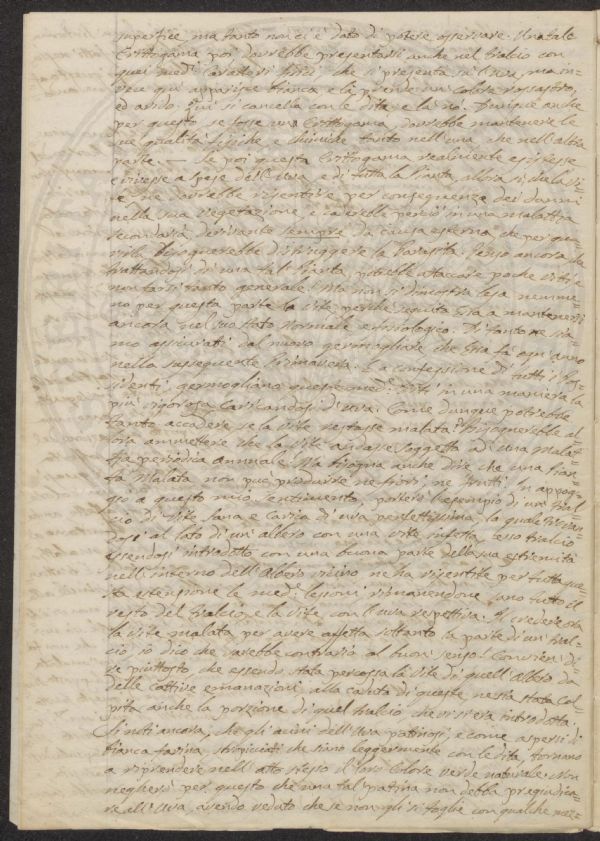 superficie, ma tanto non ci è dato di potere osservare. Una tale
Crittogama poi dovrebbe presentarsi anche nel tralcio con
quei med: caratteri fisici che si presenta su l'Uva, ma in-
vece qui apparisce bianca e là prende un colore rossastro,
ed arido. Qui si cancella con le dita e là nò. Dunque anche
per questo se fosse una Crittogama, dovrebbe mantenere le
sue qualità fisiche e chimiche tanto nell'una che nell'altra
parte. — Se poi questa Crittogama realmente esistesse
e vivesse a spese dell'Uva e di tutta la Pianta allora si che la Vi-
te ne dovrebbe risentire per conseguenza dei danni
nella sua vegetazione, e sarebbe perciò in una malattia
secondaria, derivante sempre da causa esterna che per gua-
rirla bisognerebbe distruggere la Parassita. Penso ancora che
trattandosi di una tal Pianta, potrebbe attaccare poche viti e
non farsi tanto generale. Ma non si dimostra lesa nemme-
no per questa parte la Vite perché seguita Essa a mantenersi
ancora nel suo stato Normale e fisiologico. Di tanto ne sia-
mo assicurati dal nuovo germogliare che Essa fa ogni anno
nella susseguente Primavera. E a confessione di tutti i Pos-
sidenti, germogliano queste med: Viti in una maniera la
più vigorosa caricandosi d'uva. Come dunque potrebbe
tanto accadere se la Vite restasse malata? Bisognerebbe al-
lora ammettere che la Vite andasse soggetta ad una malat-
tia periodica annuale! Ma bisogna anche dire che una Pian-
ta Malata non può produrre ne fiori, ne frutti. In appog-
gio a questo mio sentimento, porterò l'esempio di un tral-
cio di Vite sana e carica di uva perfettissima, la quale trovan-
dosi al lato di un'albero con una vite infetta, esso tralcio
essendosi introdotto con una buona parte della sua estremità
nell'interno dell'Albero vicino ne ha risentite per tutta que-
sta estensione le med: lesioni rimanendone sano tutto il
resto del tralcio e la Vite, con l'uva respettiva. Il credere ora
la Vite malata per avere affetta soltanto la parte di un tral-
cio io dico che sarebbe contrario al buon senso! Convien di-
re piuttosto che essendo stata percossa la Vite di quell'Albero da
delle cattive emanazioni, alla caduta di queste ne sia stata col-
pita anche la porzione di quel tralcio che vi si era introdotta.
Si noti ancora, che gli acini dell'Uva patinosi, e come aspersi di
bianca farina, stropicciati che siano leggermente con le dita, tornano
a riprendere nell'atto stesso il loro colore verde naturale. Non
negherò per questo che una tal patina non debba pregiudica-
re all'Uva, avendo veduto che se non gli si toglie con qualche mez-